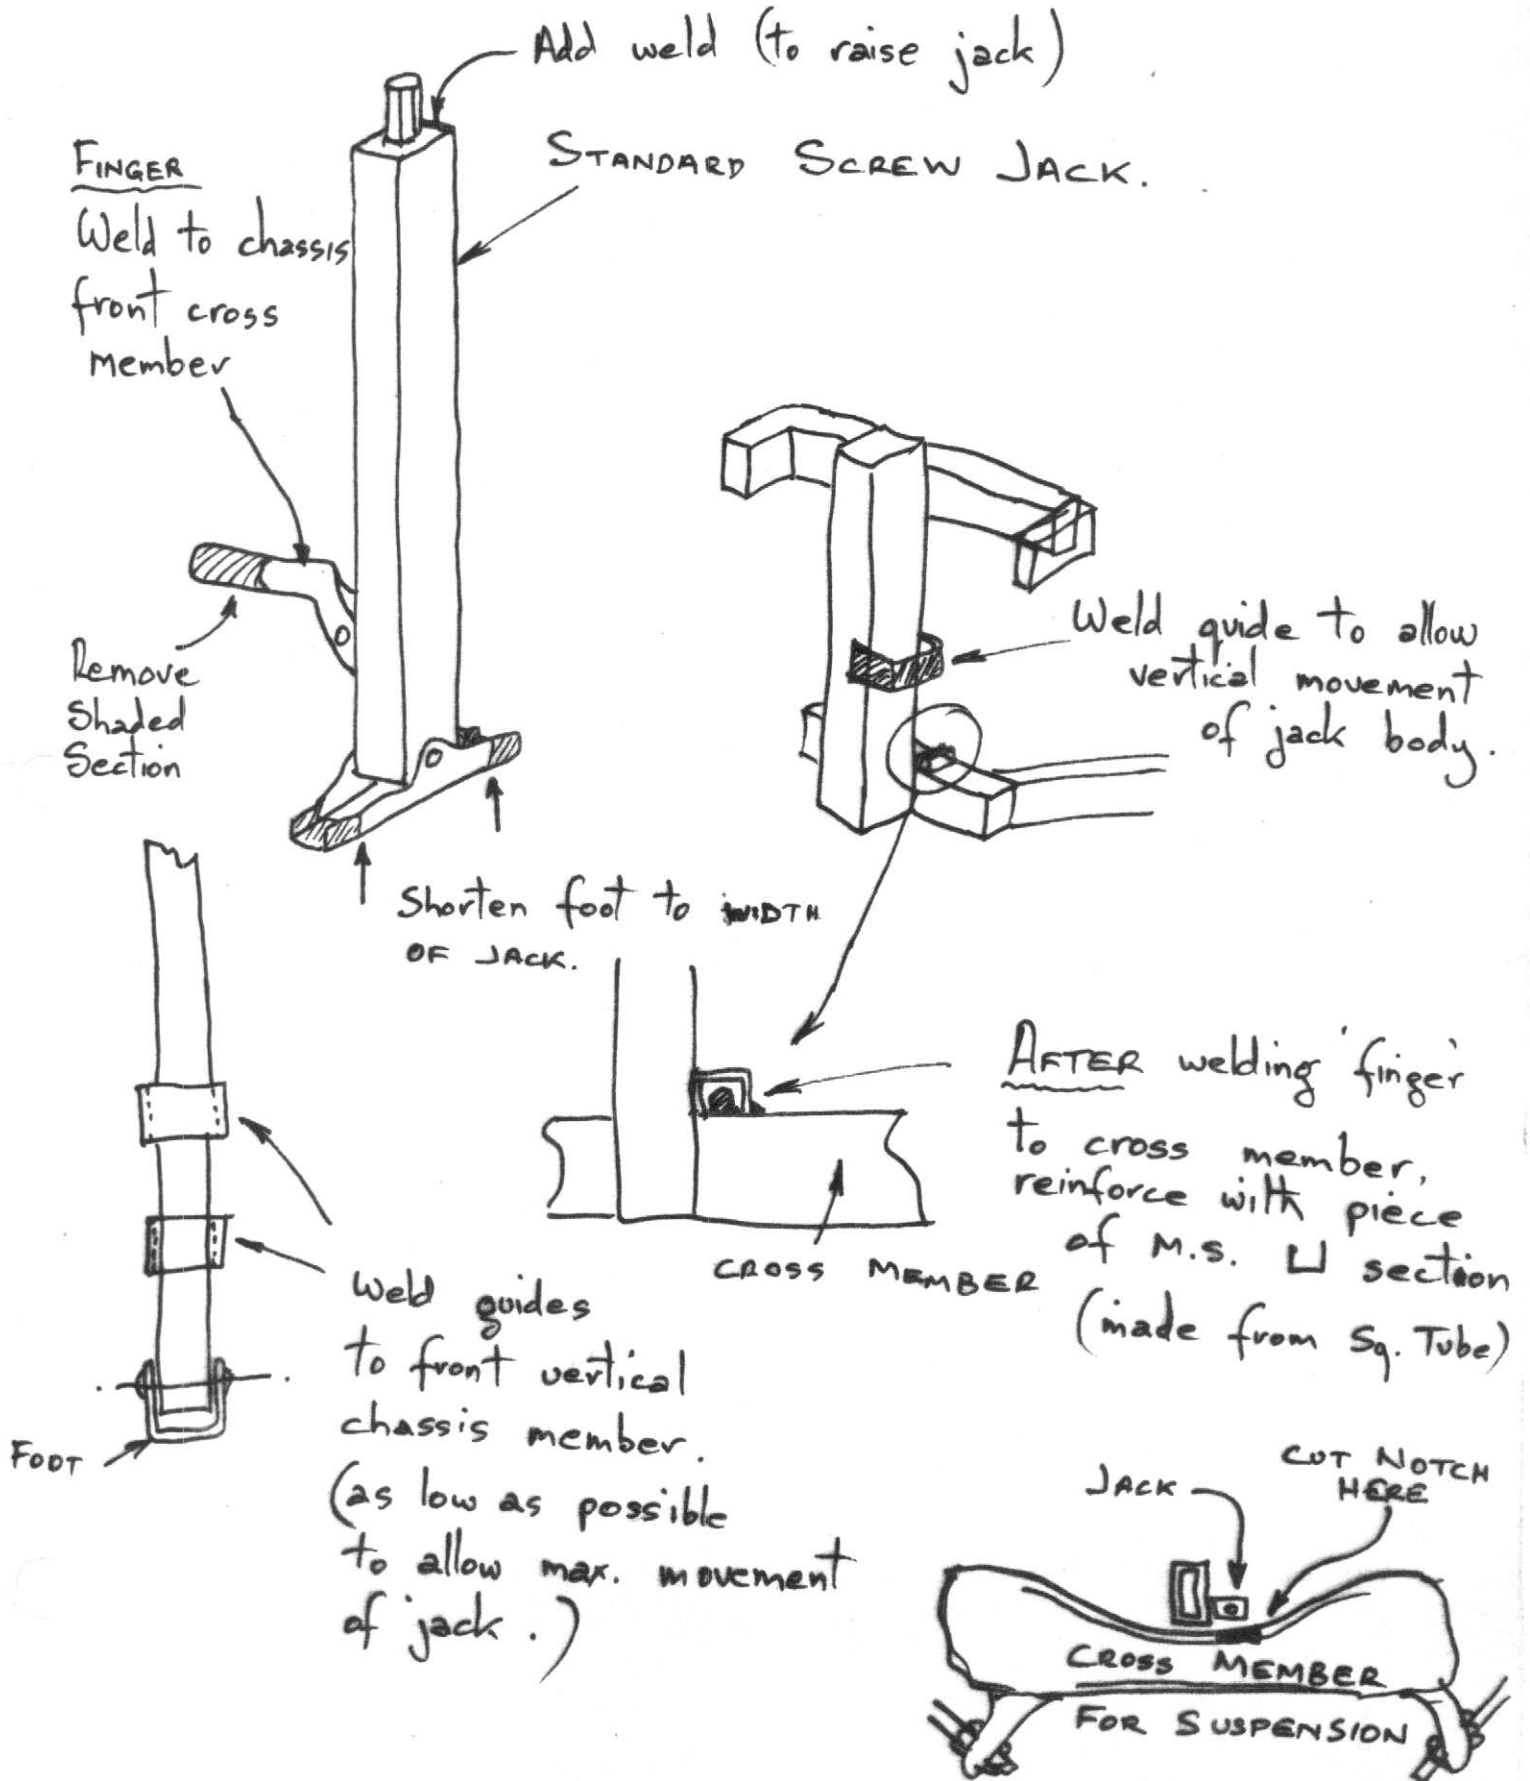 Add weld (to raise jack)
STANDARD SCREW JACK.
FINGER
Weld to chassis
front cross
member
Remove
Shaded
Section
Weld guide to allow
vertical movement
of jack body.
Shorten foot to WIDTH
OF JACK.
AFTER welding 'finger'
to cross member,
reinforce with piece
of M.S. ⊔ section
(made from Sq. Tube)
CROSS MEMBER
Weld guides
to front vertical
chassis member.
(as low as possible
to allow max. movement
of jack.)
FOOT
JACK
CUT NOTCH
HERE
CROSS MEMBER
FOR SUSPENSION